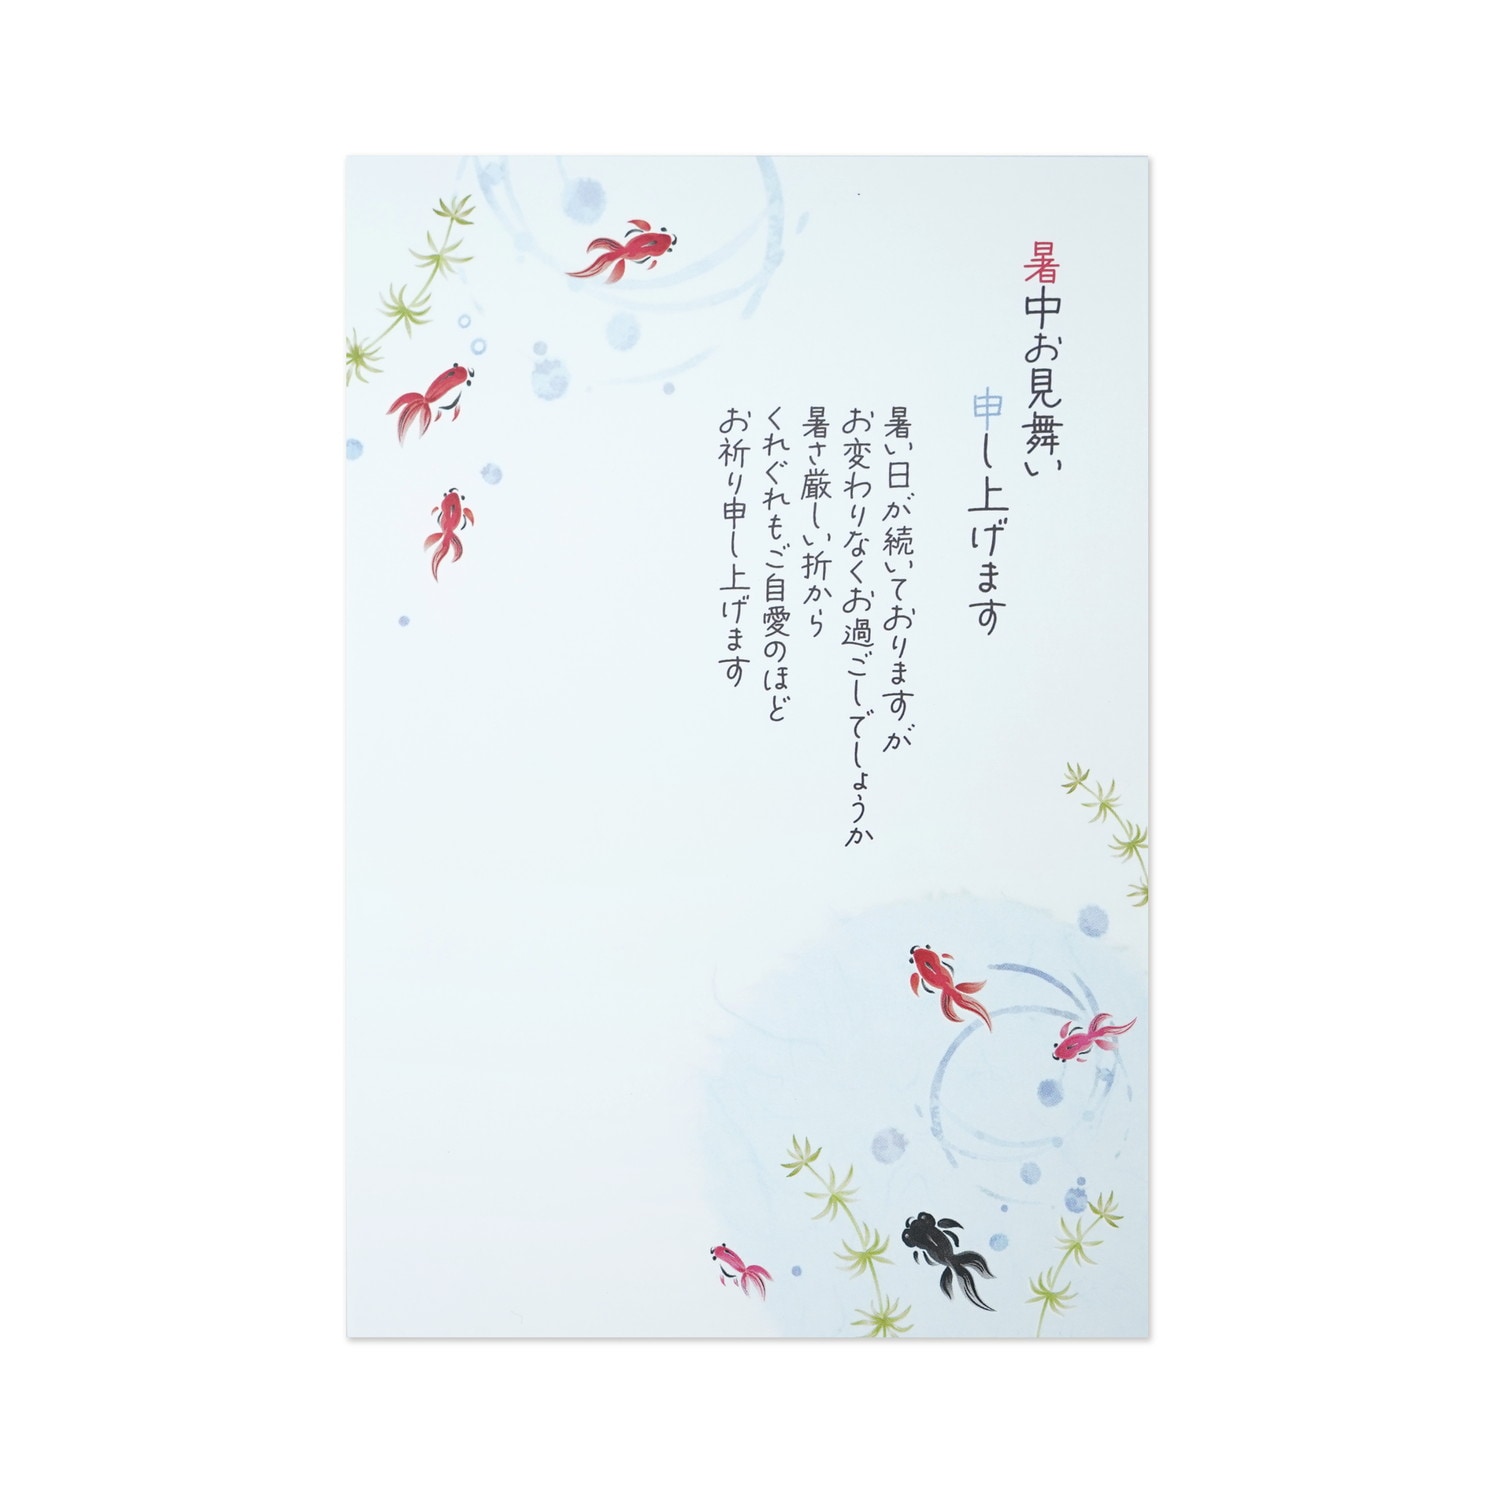 暑中お見舞い
申し上げます
暑い日が続いておりますが
お変わりなくお過ごしでしょうか
暑さ厳しい折から
くれぐれもご自愛のほど
お祈り申し上げます